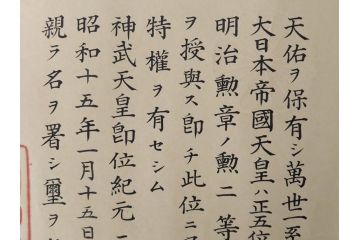 天佑ヲ保有シ萬世一系
大日本帝國天皇ハ正五位
明治勲章ノ勲二等
ヲ授與ス卽チ此位ニ
特權ヲ有セシム
神武天皇卽位紀元二
昭和十五年一月十五日
親ラ名ヲ署シ璽ヲ